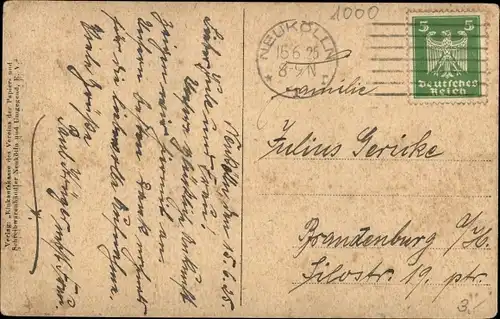 1000
NEUKÖLLN
15.6.25
8-9 N
5 5
Deutsches
Reich
Familie
Julius Gericke
Brandenburg a/H.
Silostr. 19. ptr.
3.-
Neukölln, den 15.6.25.
Lieber Emil und Frau!
Unsere glückliche Ankunft
zeigen wir hiermit an
Unsern besten Dank
für die liebevolle Aufnahme.
Viele Grüße
Paul Krüger nebst Frau.
Verlag: „Einkaufskasse des Vereins der Papier- und
Schreibwarenhändler Neukölln und Umgegend, E. V.“